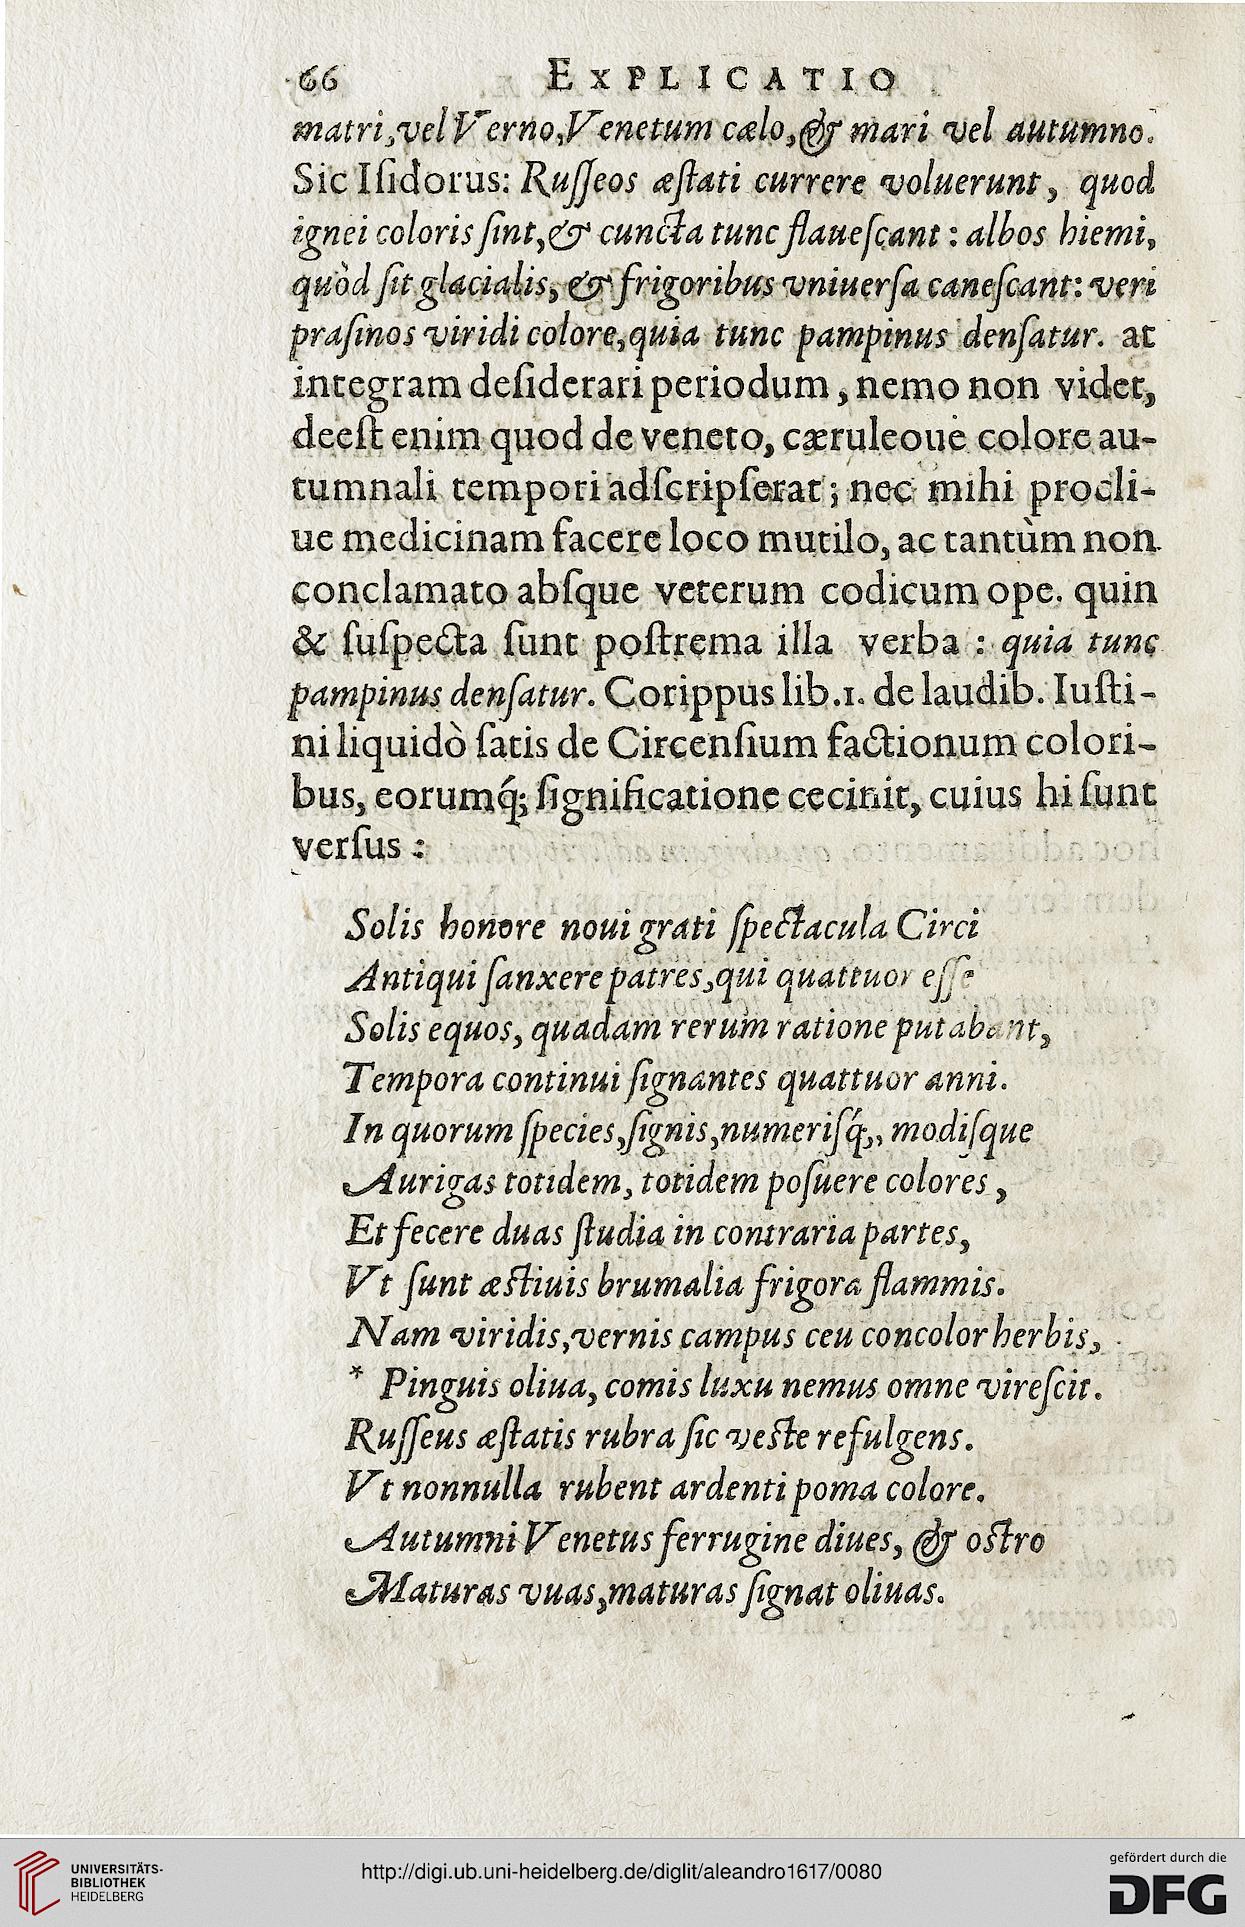 66 EXPLICATIO
matri,vel Verno,Venetum cælo,& mari vel autumno.
Sic Iſidorus: Ruſſeos æſtati currere voluerunt, quod
ignei coloris ſint,& cuncta tunc flaueſcant: albos hiemi,
quòd ſit glacialis, & frigoribus vniuerſa caneſcant: veri
praſinos viridi colore,quia tunc pampinus denſatur. at
integram deſiderari periodum, nemo non videt,
deeſt enim quod de veneto, cæruleoue colore au-
tumnali tempori adſcripſerat; nec mihi procli-
ue medicinam facere loco mutilo, ac tantùm non
conclamato abſque veterum codicum ope. quin
& ſuſpecta ſunt poſtrema illa verba : quia tunc
pampinus denſatur. Corippus lib.1. de laudib. Iuſti-
ni liquidò ſatis de Circenſium factionum colori-
bus, eorumq́; ſignificatione cecinit, cuius hi ſunt
verſus :
Solis honore noui grati ſpectacula Circi
Antiqui ſanxere patres,qui quattuor eſſe
Solis equos, quadam rerum ratione putabant,
Tempora continui ſignantes quattuor anni.
In quorum ſpecies,ſignis,numeriſq́;, modiſque
Aurigas totidem, totidem poſuere colores,
Et fecere duas ſtudia in contraria partes,
Vt ſunt æſtiuis brumalia frigora flammis.
Nam viridis,vernis campus ceu concolor herbis,
* Pinguis oliua, comis luxu nemus omne vireſcit.
Ruſſeus æſtatis rubra ſic veſte refulgens.
Vt nonnulla rubent ardenti poma colore.
Autumni Venetus ferrugine diues, & oſtro
Maturas vuas,maturas ſignat oliuas.
UNIVERSITÄTS-
BIBLIOTHEK
HEIDELBERG
http://digi.ub.uni-heidelberg.de/diglit/aleandro1617/0080
gefördert durch die
DFG